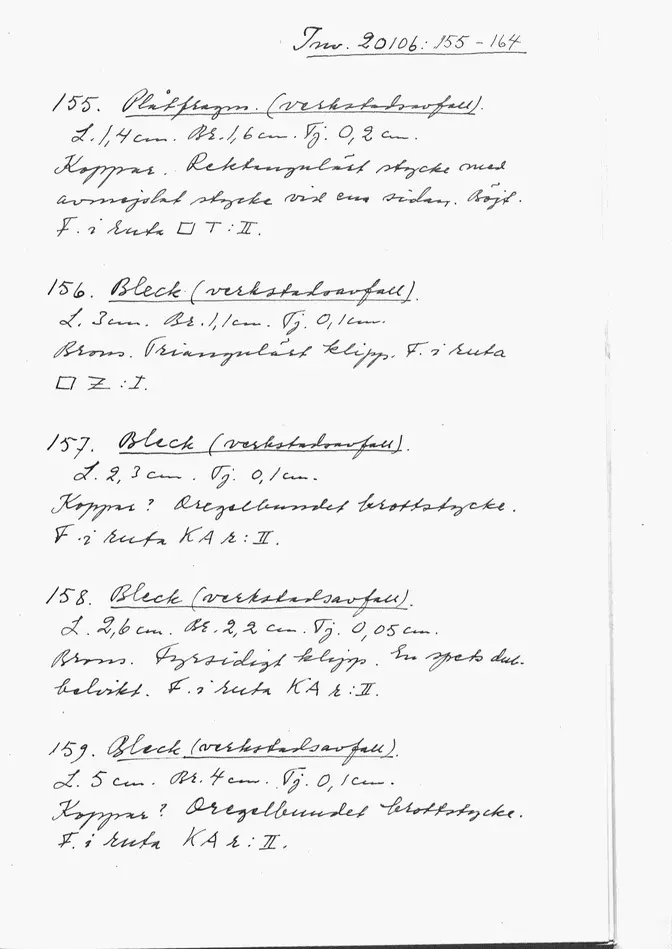 Inv. 20106: 155 - 164
155. Plåtfragm. (verkstadsavfall).
L. 1,4 cm. Br. 1,6 cm. Tj. 0,2 cm.
Koppar. Rektangulärt stycke med
avmejslat stycke vid ena sidan. Böjt.
F. i ruta □ T : II.
156. Bleck (verkstadsavfall).
L. 3 cm. Br. 1,1 cm. Tj. 0,1 cm.
Brons. Triangulärt klipp. F. i ruta
□ Z : I.
157. Bleck (verkstadsavfall).
L. 2,3 cm. Tj. 0,1 cm.
Koppar? Oregelbundet brottstycke.
F. i ruta KA r : II.
158. Bleck (verkstadsavfall).
L. 2,6 cm. Br. 2,2 cm. Tj. 0,05 cm.
Brons. Fyrsidigt klipp. En spets dub-
belvikt. F. i ruta KA r : II.
159. Bleck (verkstadsavfall).
L. 5 cm. Br. 4 cm. Tj. 0,1 cm.
Koppar? Oregelbundet brottstycke.
F. i ruta KA r : II.